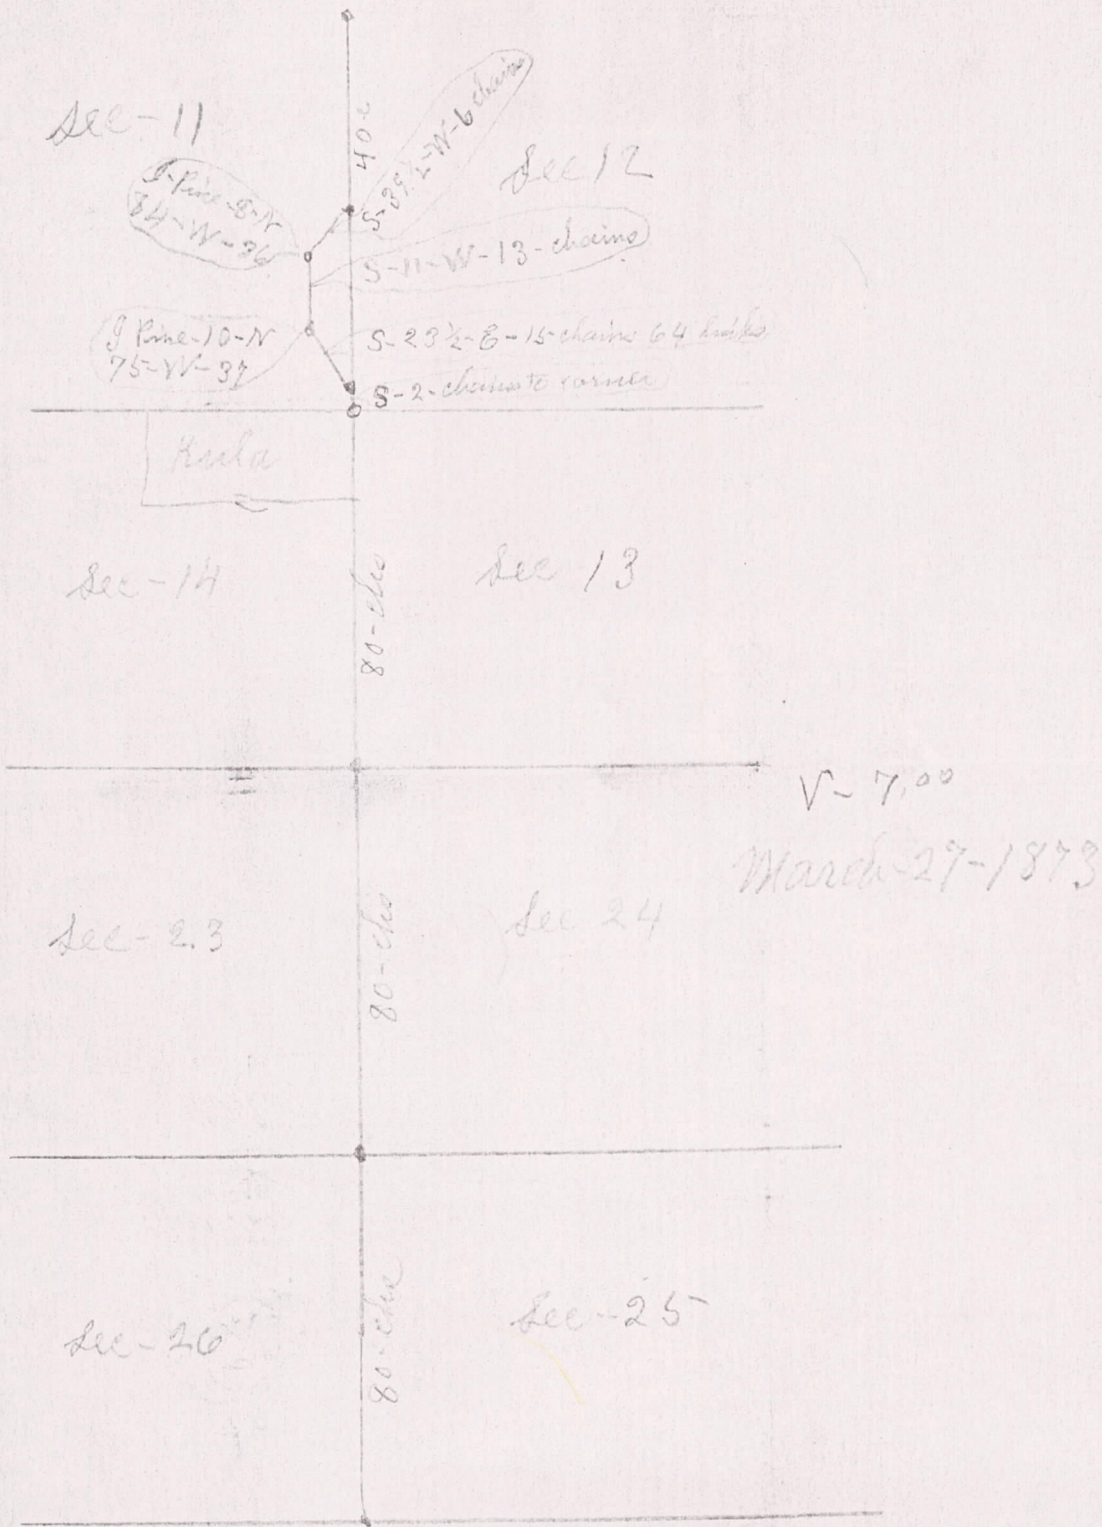 Sec-11
40-c
S-39½-W-6 chains
Sec 12
J-Pine-8-N
84-W-36
S-11-W-13-chains
J Pine-10-N
75-W-37
S-23½-E-15-chains 64 links
S-2-chains to corner
Sec-14
Sec 13
80-chs
V- 7.00
March-27-1873
Sec-23
Sec 24
80-chs
Sec-26
Sec-25
80-chs